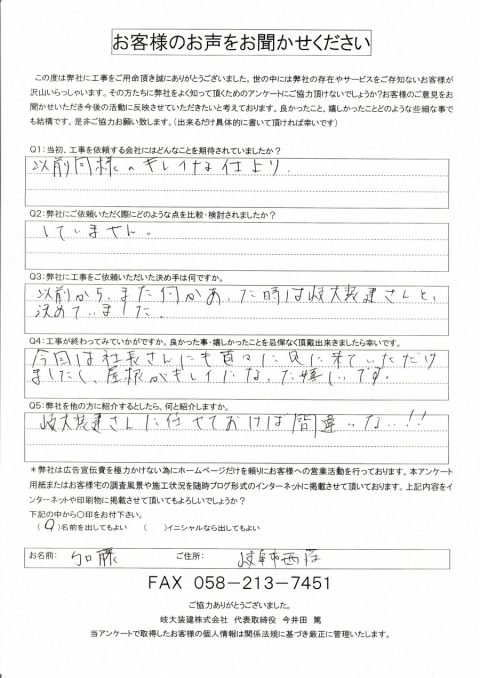 お客様のお声をお聞かせください
この度は弊社に工事をご用命頂き誠にありがとうございました。世の中には弊社の存在やサービスをご存知ないお客様が
沢山いらっしゃいます。その方たちに弊社をよく知って頂くためのアンケートにご協力頂けないでしょうか?お客様のご意見をお
聞かせいただき今後の活動に反映させていただきたいと考えております。良かったこと、嬉しかったことどのような些細な事で
も結構です。是非ご協力お願い致します。(出来るだけ具体的に書いて頂ければ幸いです)
Q1:当初、工事を依頼する会社にはどんなことを期待されていましたか?
以前同様のキレイな仕上り.
Q2:弊社にご依頼いただく際にどのような点を比較・検討されましたか?
していません。
Q3:弊社に工事をご依頼いただいた決め手は何ですか。
以前から、また何かあった時は岐大装建さんと、
決めていました.
Q4:工事が終わってみていかがですか。良かった事・嬉しかったことを忌憚なく頂戴出来きましたら幸いです。
今回は社長さんにも直々に見に来ていただけ
ましたし、屋根がキレイになった嬉しいです.
Q5:弊社を他の方に紹介するとしたら、何と紹介しますか。
岐大装建さんに任せておけば間違いない!!
*弊社は広告宣伝費を極力かけない為にホームページだけを頼りにお客様への営業活動を行っております。本アンケート
用紙またはお客様宅の調査風景や施工状況を随時ブログ形式のインターネットに掲載させて頂いております。上記内容をイ
ンターネットや印刷物に掲載させて頂いてもよろしいでしょうか?
下記の中から〇印をお付下さい。
(〇)名前を出してもよい ( )イニシャルなら出してもよい
お名前: 加藤 ご住所: 岐阜市西荘
FAX 058-213-7451
ご協力ありがとうございました。
岐大装建株式会社 代表取締役 今井田 篤
当アンケートで取得したお客様の個人情報は関係法規に基づき厳正に管理いたします。